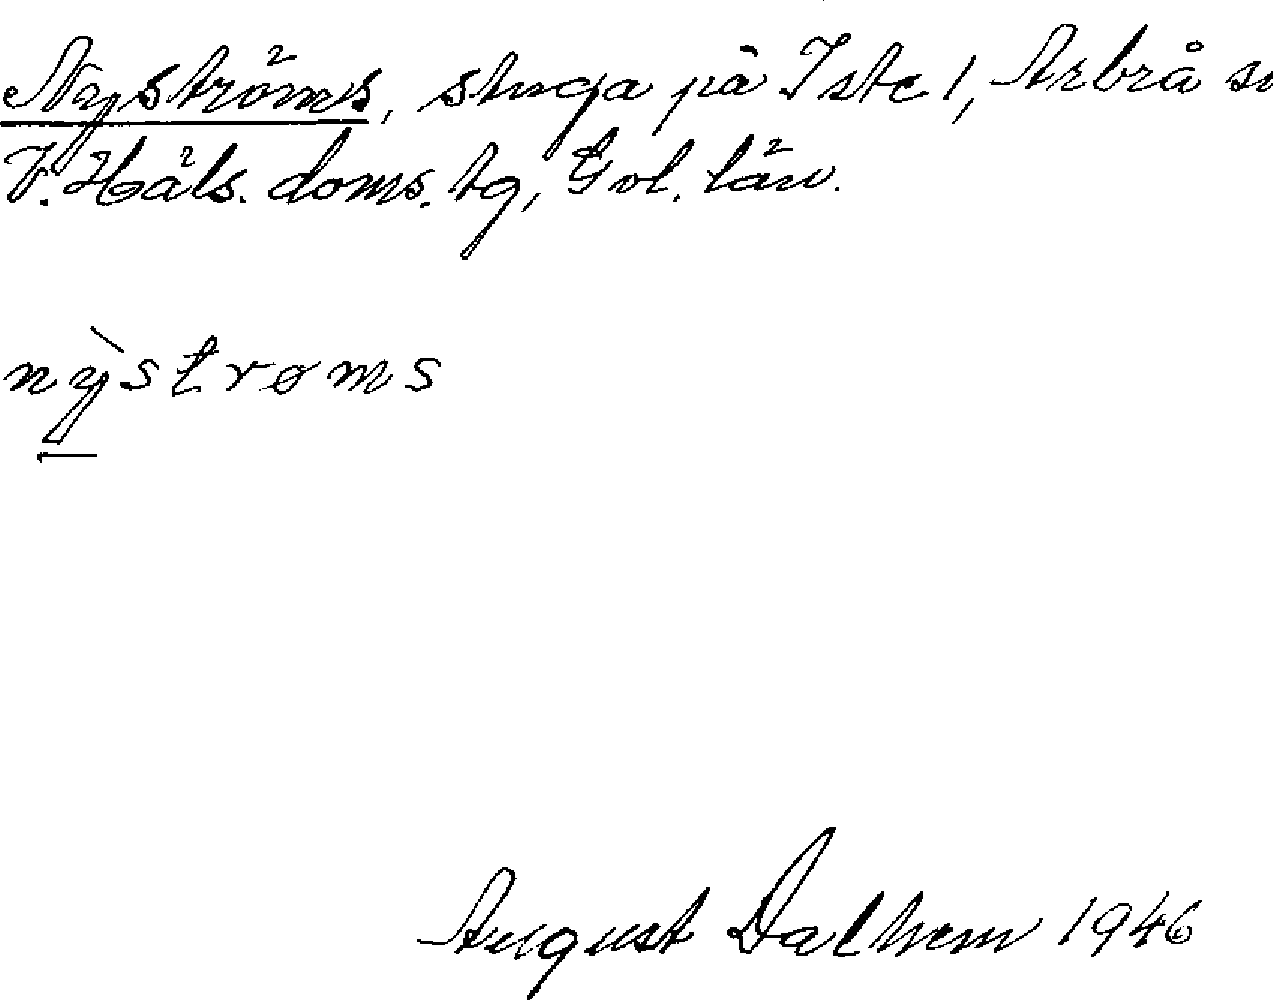 Nyströms, stuga på Iste 1, Arbrå sn
V. Häls. doms. tg, Gvl. län.
nỳstrøms
August Dalhem 1946